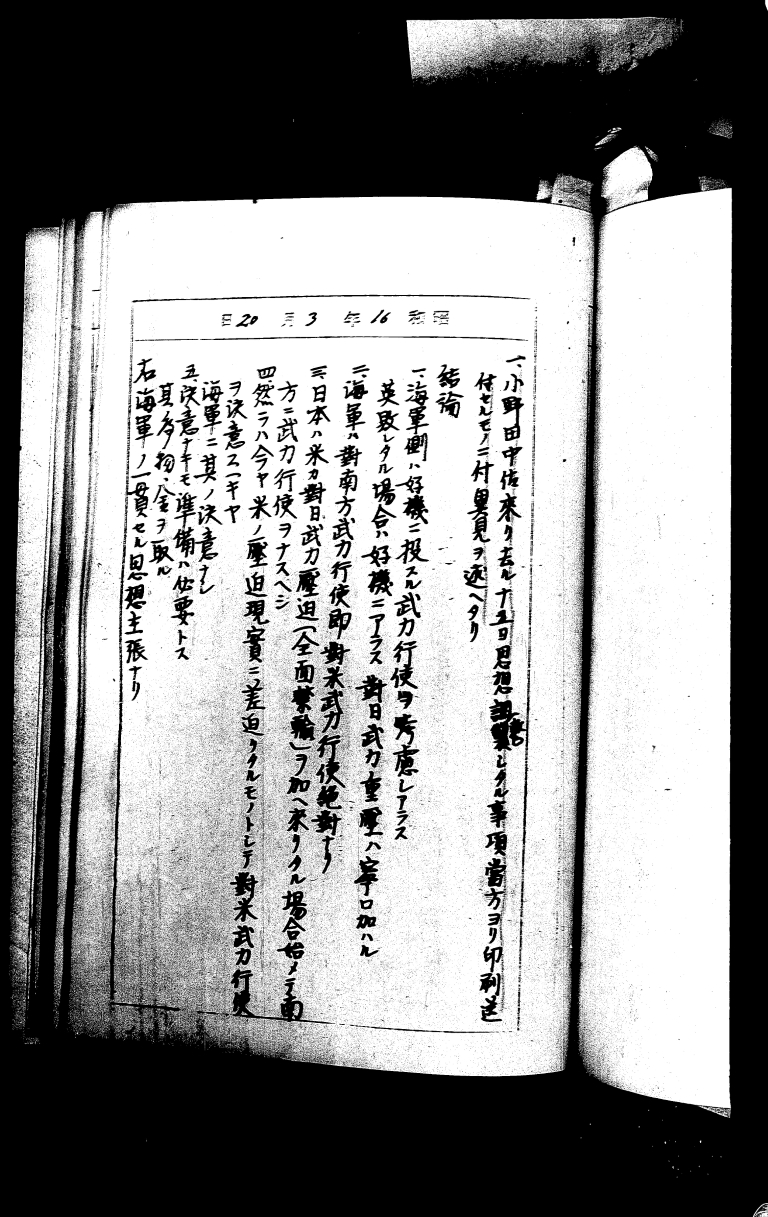 昭和16年3月20日
一、小野田中佐來リ去ル十五日思想調整シタル事項當方ヨリ印刷送
付セルモノニ付異見ヲ述ヘタリ
結論
一、海軍側ハ好機ニ投スル武力行使ヲ考慮シアラス
英敗レタル場合ハ好機ニアラス對日武力重壓ハ寧ロ加ハル
二、海軍ハ對南方武力行使即對米武力行使絶對ナリ
三、日本ハ米カ對日武力壓迫（全面禁輸）ヲ加ヘ來リタル場合始メテ南
方ニ武力行使ヲナスヘシ
四、然ラハ今ヤ米ノ壓迫現實ニ差迫リタルモノトシテ對米武力行使
ヲ決意スヘキヤ
海軍ニ其ノ決意ナシ
五、決意ナキモ準備ハ必要トス
其ノ為物、金ヲ取ル
右海軍ノ一貫セル思想主張ナリ